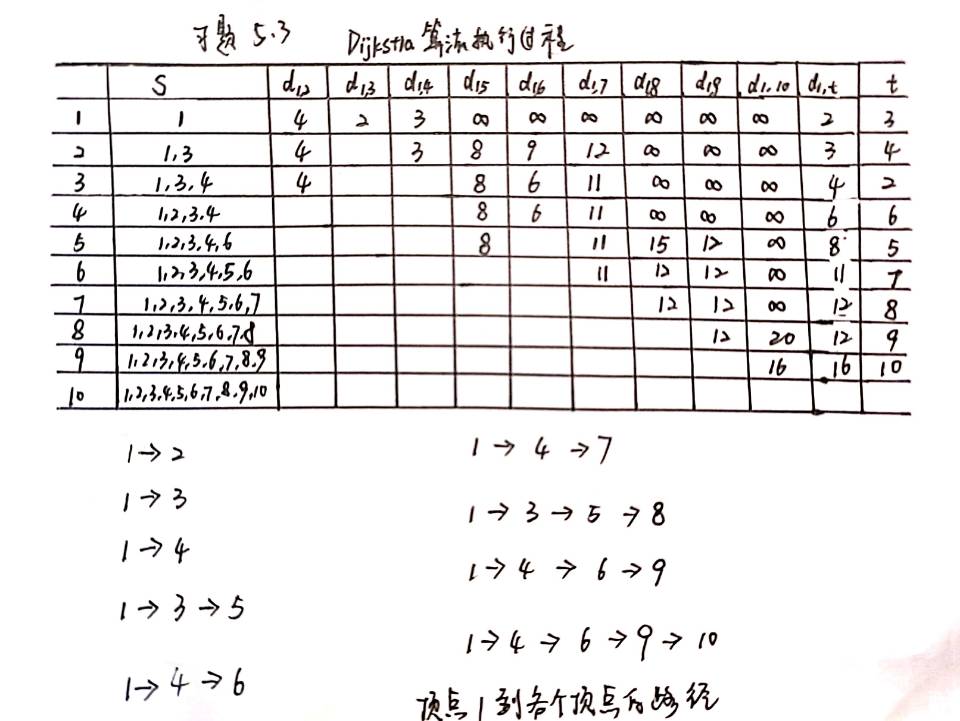 习题 5.3 Dijkstla 算法执行过程
S d1,2 d1,3 d1,4 d15 d1,6 d1,7 d1,8 d1,9 d1,10 d1,t t
1 1 4 2 3 ∞ ∞ ∞ ∞ ∞ ∞ 2 3
2 1,3 4 3 8 9 12 ∞ ∞ ∞ 3 4
3 1,3,4 4 8 6 11 ∞ ∞ ∞ 4 2
4 1,2,3.4 8 6 11 ∞ ∞ ∞ 6 6
5 1,2,3,4,6 8 11 15 12 ∞ 8 5
6 1,2,3,4,5,6 11 12 12 ∞ 11 7
7 1,2,3,4,5,6,7 12 12 ∞ 12 8
8 1,2,3,4,5,6,7,8 12 20 12 9
9 1,2,3,4,5,6,7,8,9 16 16 10
10 1,2,3,4,5,6,7,8,9,10
1→2
1→3
1→4
1→3→5
1→4→6
1→4→7
1→3→5→8
1→4→6→9
1→4→6→9→10
顶点1到各个顶点的路径